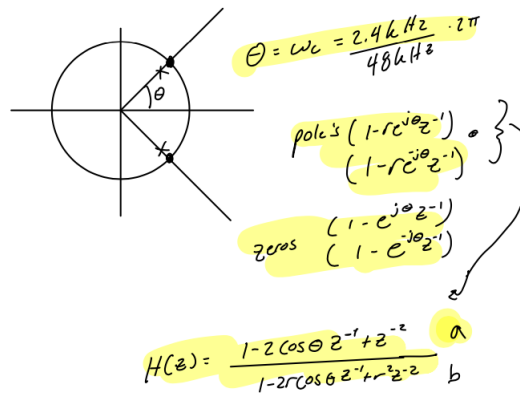 θ = ωc = 2.4kHz / 48kHz · 2π
θ
pole's (1-re^{jθ}z^{-1}) •
(1-re^{-jθ}z^{-1})
zeros (1-e^{jθ}z^{-1})
(1-e^{-jθ}z^{-1})
H(z) = 1-2cosθ z^{-1}+z^{-2} a
1-2rcosθ z^{-1}+r^2z^{-2} b